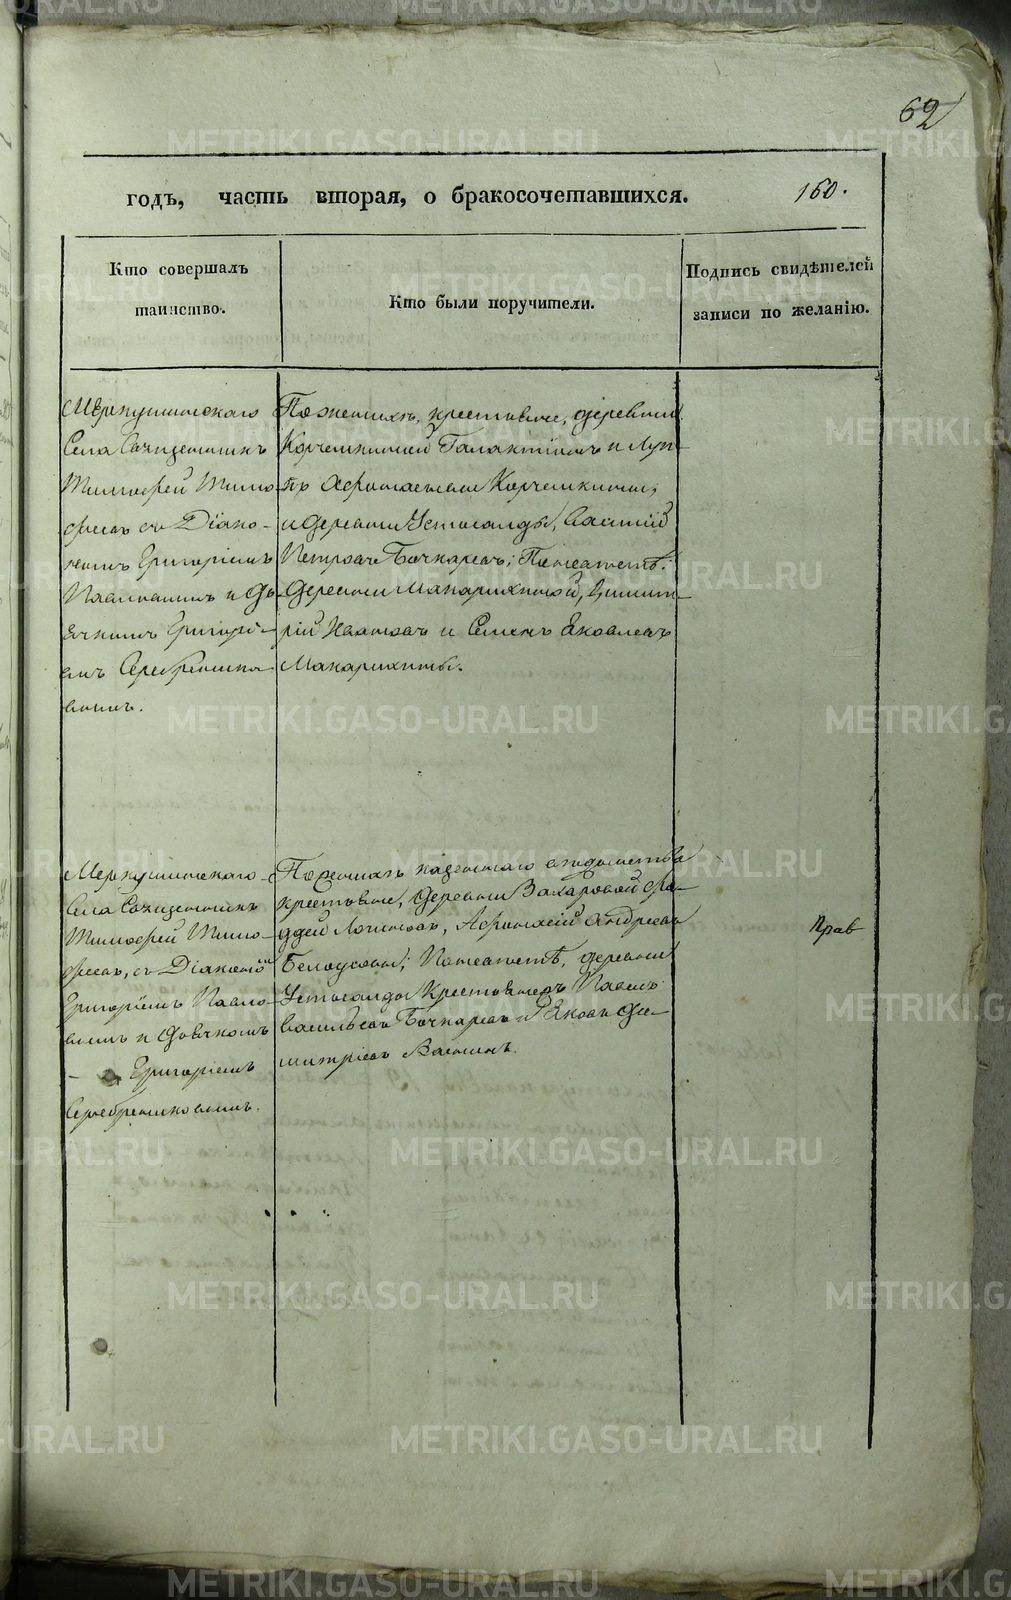 62
годъ, часть вторая, о бракосочетавшихся. 160.
Кто совершалъ
таинство.
Кто были поручители.
Подпись свидѣтелей
записи по желанію.
Меркушинскаго
Села Священникъ
Тимофей Тимо-
феевъ съ Діако-
номъ Григоріемъ
Павловымъ и Дь-
ячкомъ Григорі-
емъ Серебреннико-
вымъ.
По женихѣ, крестьяне, деревни
Корчемкиной Галактіонъ и Лу-
Корчемкины,
и деревни Устьсалды, Василій
Петровъ Бочкаревъ; По невѣстѣ:
Деревни Макарихиной, Димит-
рій Ивановъ и Семенъ Яковлевъ
Макарихины.
Меркушинскаго
Села Священникъ
Тимофей Тимо-
феевъ, съ Діакономъ
Григоріемъ Павло-
вымъ и Дьячкомъ
Григоріемъ
Серебренниковымъ.
По женихѣ казеннаго вѣдомства
крестьяне, Деревни Захаровой Фа-
ддей Логиновъ, Андреевъ
Белоусовы; По невѣстѣ, деревни
Устьсалды Крестьяне Павелъ
Васильевъ Бочкаревъ и Яковъ Ди-
митріевъ
Прав
METRIKI.GASO-URAL.RU